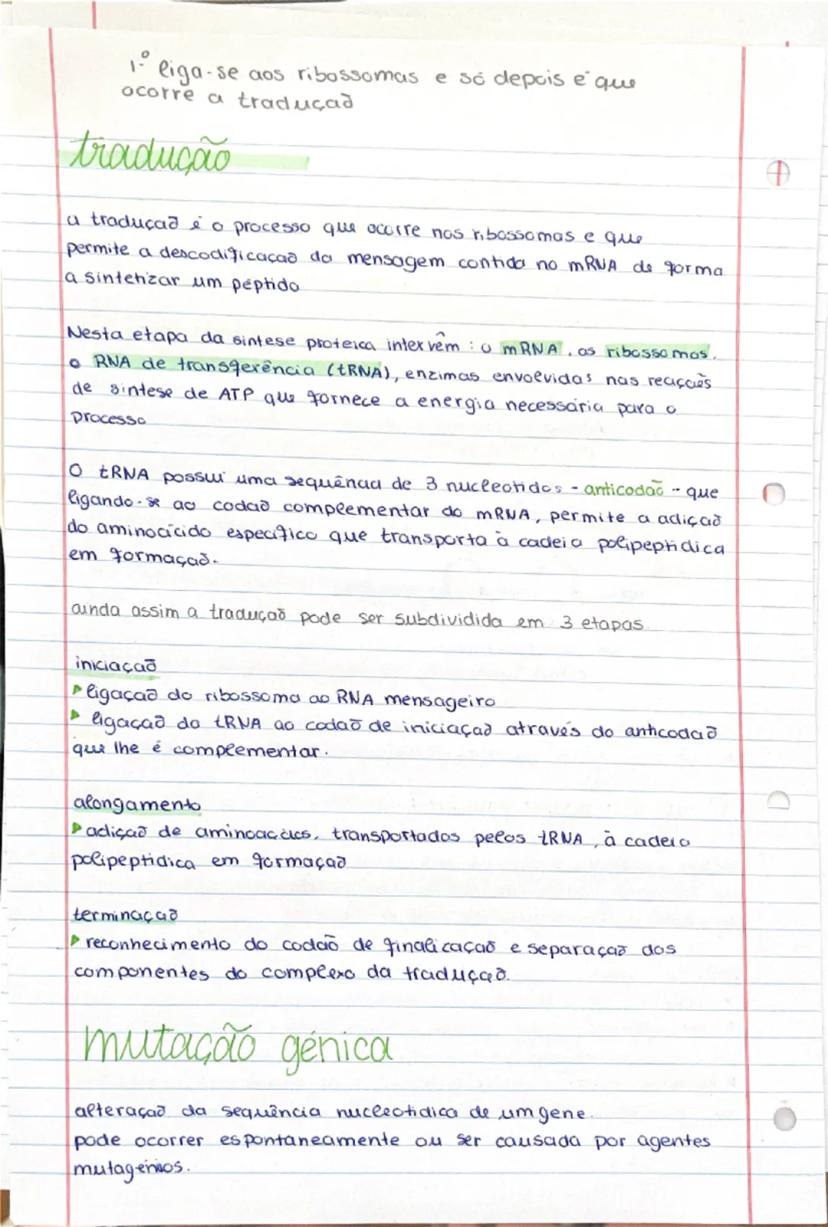 1.º liga-se aos ribossomas e só depois é que
ocorre a tradução
tradução
a tradução é o processo que ocorre nos ribossomas e que
permite a descodificação da mensagem contida no mRNA de forma
a sintetizar um péptido
Nesta etapa da síntese proteica intervêm : o mRNA, os ribossomas,
o RNA de transferência (tRNA), enzimas envolvidas nas reações
de síntese de ATP que fornece a energia necessária para o
processo
O tRNA possui uma sequência de 3 nucleotidos - anticodão - que
ligando-se ao codão complementar do mRNA, permite a adição
do aminoácido específico que transporta à cadeia polipeptídica
em formação.
ainda assim a tradução pode ser subdividida em 3 etapas
iniciação
▶ ligação do ribossoma ao RNA mensageiro
▶ ligação do tRNA ao codão de iniciação através do anticodão
que lhe é complementar.
alongamento
▶ adição de aminoácidos, transportados pelos tRNA, à cadeia
polipeptídica em formação
terminação
▶ reconhecimento do codão de finalicação e separação dos
componentes do complexo da tradução.
mutação génica
alteração da sequência nucleotídica de um gene.
pode ocorrer espontaneamente ou ser causada por agentes
mutagénios.